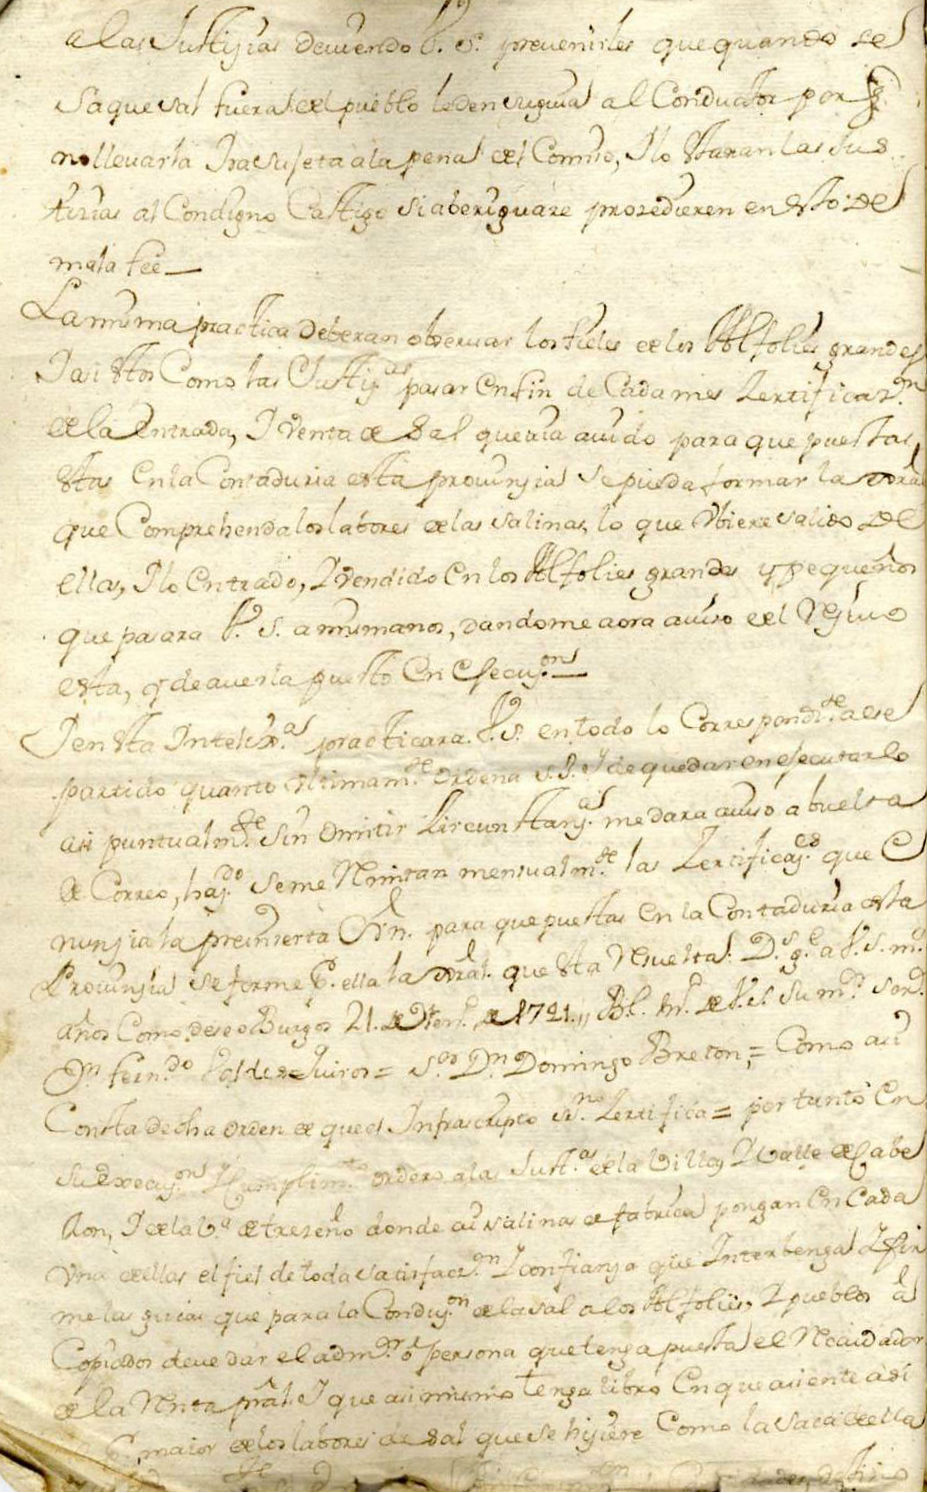 a las Justizias deviendo V. S. prevenirles que quando se
saque sal fuera del pueblo le den su guia al Conductor por q.
no llevarla Ira sujeta a la pena del Comiso, I lo Estaran las Jus
tizias al Condigno Castigo si aberiguare prozedieren en esto de
mala fee —
La misma practica deberan observar los fieles de los Alfolies grandes
I asi Estos Como las Justiz.as pasar en fin de Cada mes Zertificaz.on
de la Entrada, I Venta de Sal que aia avido para que puestas
Estas en la Contaduria esta provinzia se pueda formar la Gral
que Comprehenda los labores de las salinas, lo que Ubiere salido de
ellas, I lo entrado, I Vendido en los Alfolies grandes y pequeños
que pasara V. S. a mis manos, dandome aora aviso del Rezivo
esta, y de averla puesto en execuz.on —
I en Esta Inteliz.a practicara V. S. en todo lo Correspond.te a ese
partido quanto ultimam.te ordena S. S. y de quedar en executarlo
asi puntualm.te sin omitir Zircunstanz.a me dara aviso a buelta
de Correo, haz.do se me Remitan mensualm.te las Zertificaz.es que e
nunzia la preinserta Orn. para que puestas en la Contaduria esta
Provinzia se forme P. ella la Gral. que Esta Resuelta. D.s g.e a V. S. m.s
años Como deseo Burgos 21. de de 1741,, Bl. M. de V. S. su m.r ser.r
D.n fern.do Valdes Quiros = S.or D.n Domingo Breton, = Como asi
Consta de dha orden de que el Infrascripto ss.no Zertifica = por tanto en
su execuz.on I Cumplim.to ordeno a las Just.as de la Villa, I Valle de Cabe
zon, I de la V.a de treseño donde ai salinas de fabrica pongan en Cada
Una de ellas el fiel de toda satisfacz.on I confianza que Interbenga I fir
me las guias que para la Conduz.on de la sal a los Alfolies, I pueblos a
Copiados deve dar el adm.or o persona que tenga puesta el Recaudador
de la Renta pral. I que asimismo tenga libro en que asiente asi
P. maior de los labores de sal que se hiziere Como la saca de ella